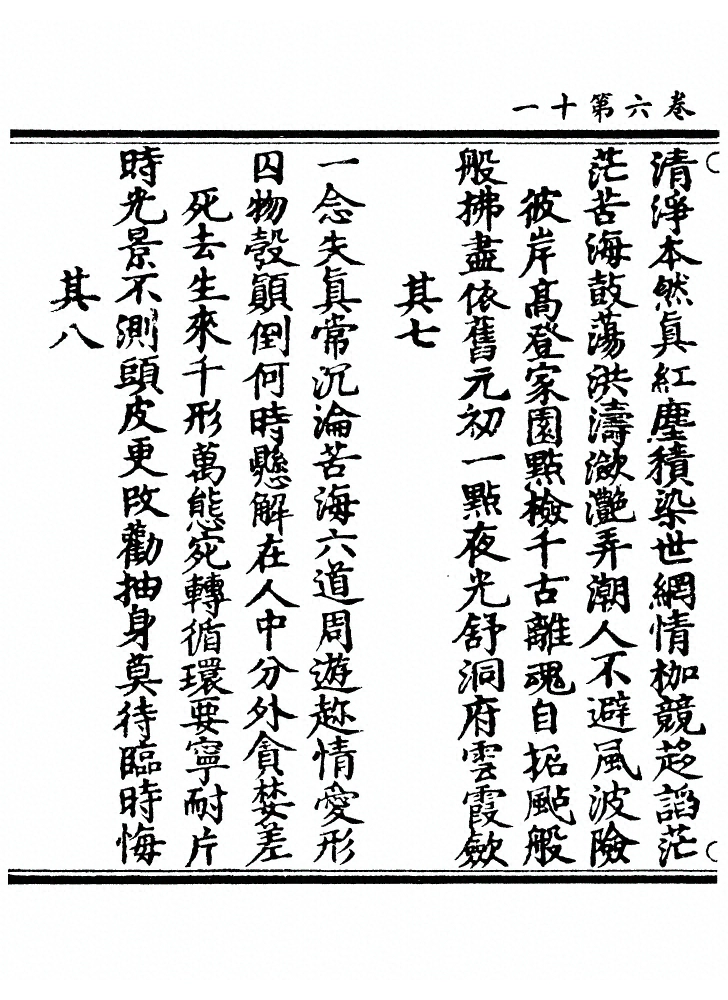 卷六第十一
清淨本然眞紅塵積染世網情枷競趂謟茫
茫苦海鼓蕩洪濤瀲灧弄潮人不避風波險
彼岸高登家園點檢千古離魂自招颭般
般拂盡依舊元初一點夜光舒洞府雲霞歛
其七
一念失眞常沉淪苦海六道周遊趂情愛形
囚物㝅顚倒何時懸解在人中分外貪婪差
死去生來千形萬態宛轉循環要寧耐片
時光景不測頭皮更改勸抽身莫待臨時悔
其八